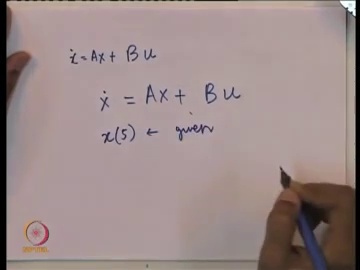 ẋ = Ax + Bu
ẋ = Ax + Bu
x(5) ← given
NPTEL